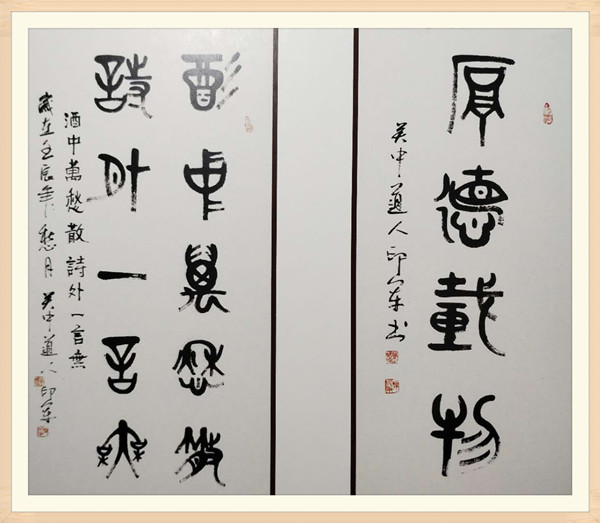 厚德載物
中道人印
酒中萬愁散
詩外一言無
酒中萬愁散詩外一言無
歲在壬辰年月中道人印